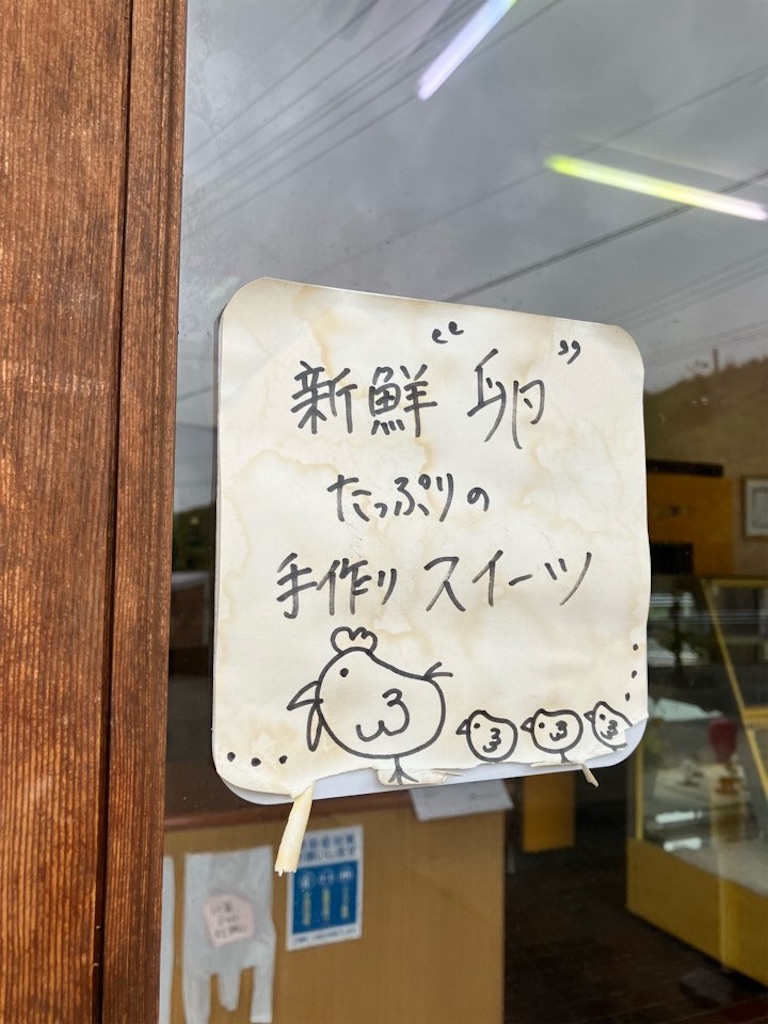 新鮮 “卵”
たっぷりの
手作りスイーツ